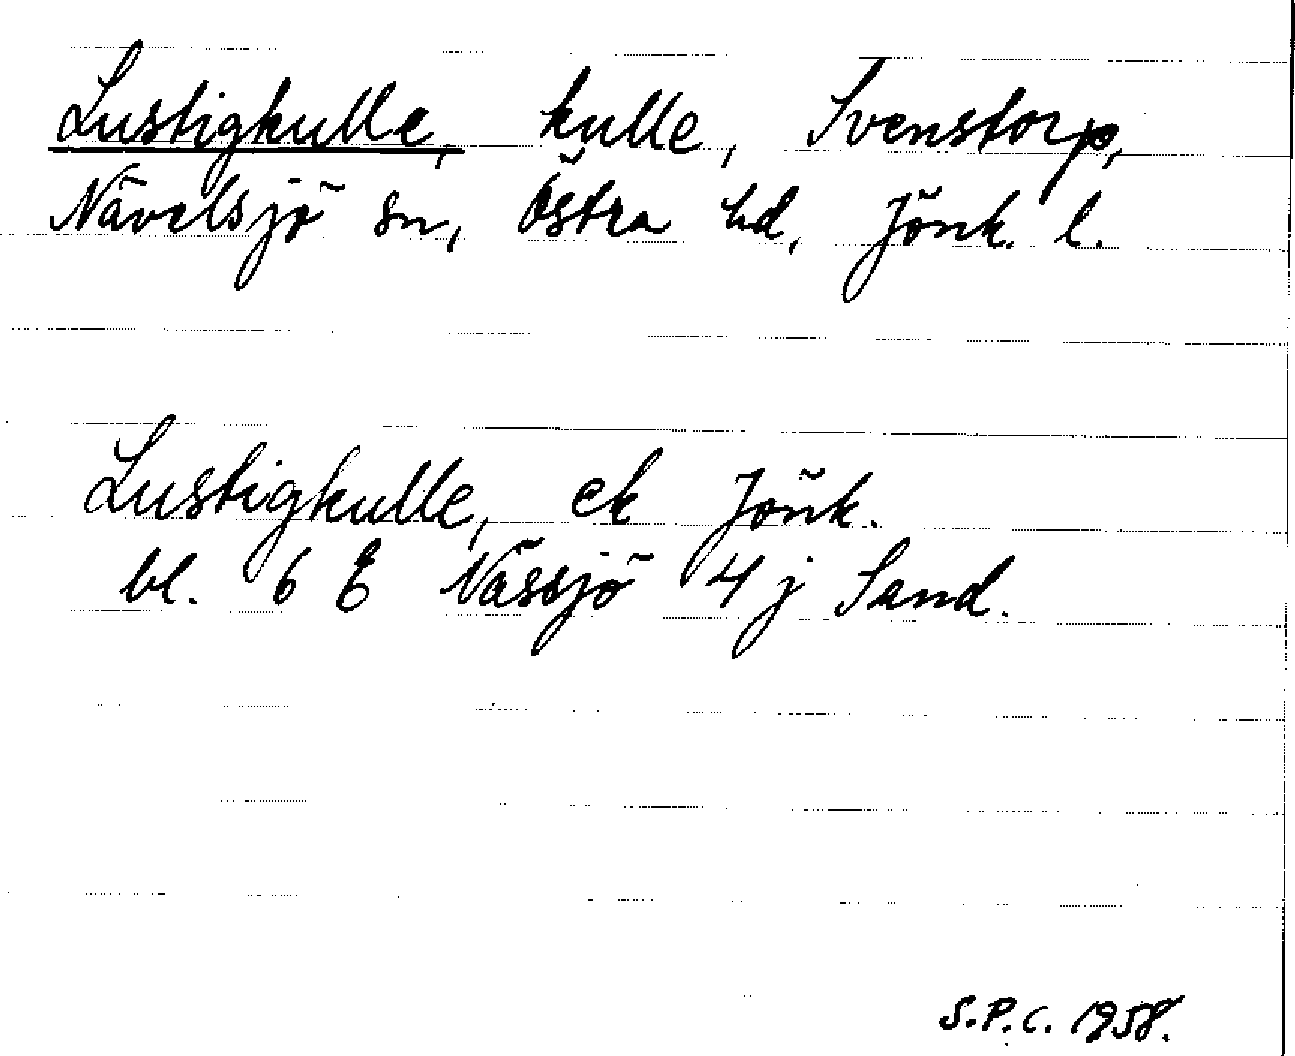 Lustigkulle, kulle, Svenstorp,
Nävelsjö sn, Östra hd, Jönk. l.
Lustigkulle, ek Jönk.
bl. 6 E Nässjö 4 j Sand.
S.P.C. 1958.